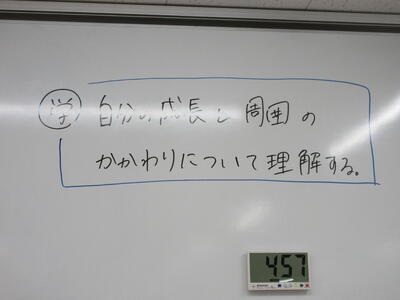 学 自分の成長と周囲の
かかわりについて理解する。
457